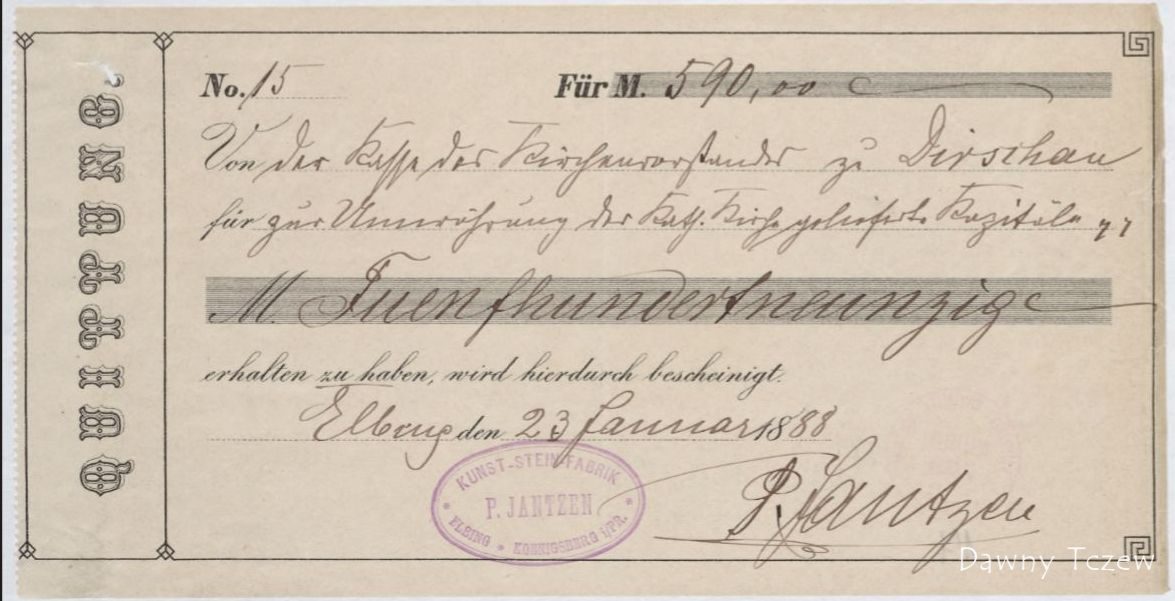 QUITTUNG.
No. 15 Für M. 590,00
Von der Kasse des Kirchenvorstandes zu Dirschau
für zur der Kath. Kirche gelieferte
M. Fuenfhundertneunzig
erhalten zu haben, wird hierdurch bescheinigt.
Elbing den 23 Januar 1888
KUNST-STEIN-FABRIK
P. JANTZEN
ELBING * KOENIGSBERG i/PR.
P. Jantzen
Dawny Tczew